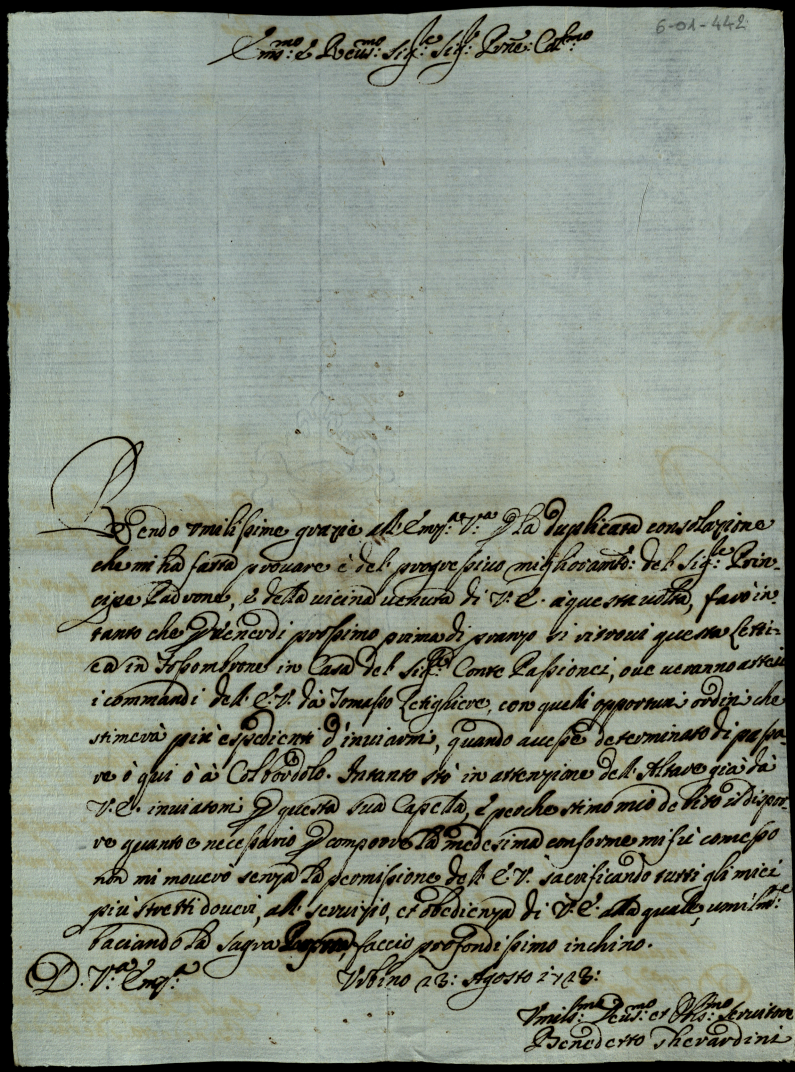 6-01-442
Em:mo è Reus:mo Sig:re Sig:re Prñe: Col:mo
Rendo vmilissime grazie all'Emz:a V:a p la duplicata consolazione
che mi ha fatta prouare è del progressiuo miglioramto: del Sig:re Prin-
cipe Padrone, è della uicina uenuta di V:E: à questa uolta, farò in-
tanto che Venerdi prossimo prima di pranzo si ritroui questa Letti-
ca in Fossombrone in Casa del Sig:r Conte Passionei, oue ueranno attesi
i commandi dell'E:V: da Tomasso Letighiere, con queli opportuni ordini che
stimerà più espedienti d'inuiarmi, quando auesse determinato di passa-
re ò qui ò à Colbordolo. Intanto stò in attenzione dell'Altare già dà
V:E: inuiatomi p questa sua Capella, è peoche stimo mio debito il dispor-
re quanto è necessario p comporre la medesima conforme mi fù comesso
non mi mouerò senza la permissione dell'E:V: sacrificando tutti gli miei
più stretti doueri, all seruizio, et obedienza di V:E: alla quale, umilmte:
baciando la sagra faccio profondissimo inchino.
D: V:a Emz:a Vrbino 23: Agosto 1723:
Vmilis:mo Deus:mo et Obls:mo Seruitore
Benedetto Gherardini